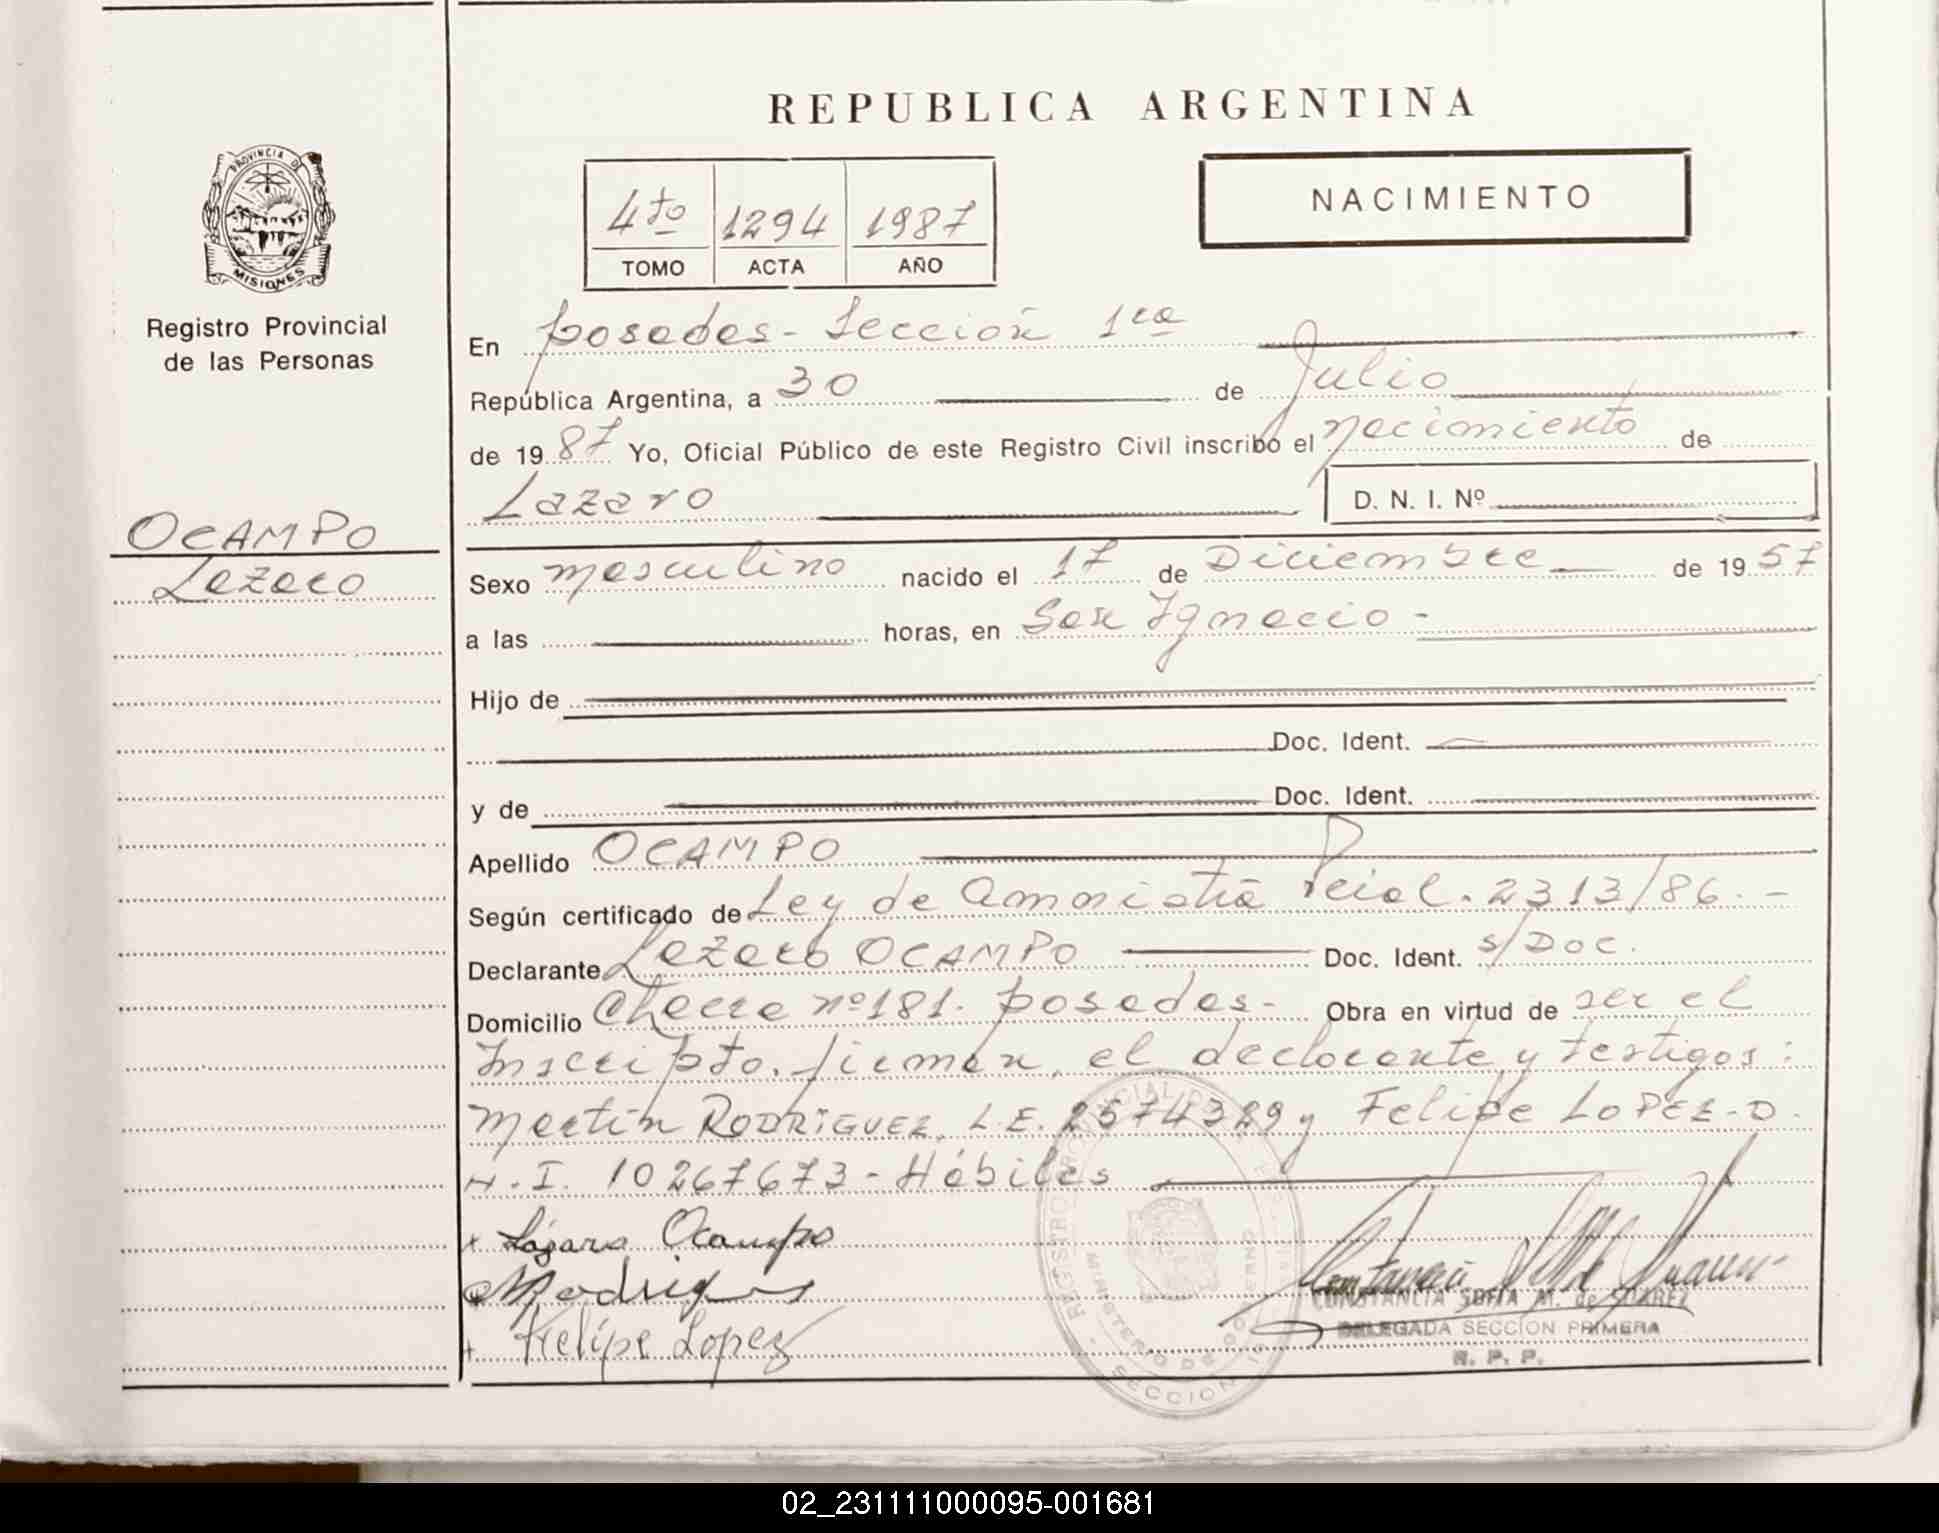 REPUBLICA ARGENTINA
PROVINCIA DE
MISIONES
Registro Provincial
de las Personas
4to 1294 1987
TOMO ACTA AÑO
NACIMIENTO
En posadas - Sección 1ra
República Argentina, a 30 de Julio
de 1987 Yo, Oficial Público de este Registro Civil inscribo el nacimiento de
Lazaro D. N. I. Nº
OCAMPO
Lazaro
Sexo masculino nacido el 17 de Diciembre de 1957
a las horas, en San Ignacio -
Hijo de
Doc. Ident.
y de Doc. Ident.
Apellido OCAMPO
Según certificado de Ley de Amnistia Pcial. 2313/86. -
Declarante Lazaro OCAMPO Doc. Ident. S/DOC.
Domicilio Chacra nº 181. posadas - Obra en virtud de ser el
Inscripto. firman, el declarante y testigos:
Martín RODRIGUEZ, L.E. 2574329 y Felipe LOPEZ - D.
N. I. 10267673 - Hábiles
x Lázaro Ocampo
Rodrigu
+ Felipe Lopez
CONSTANCIA SOFIA M. de SUAREZ
DELEGADA SECCION PRIMERA
R. P. P.
REGISTRO PROVINCIAL DE
MINISTERIO DE GOBIERNO
SECCION 1ª
02_231111000095-001681